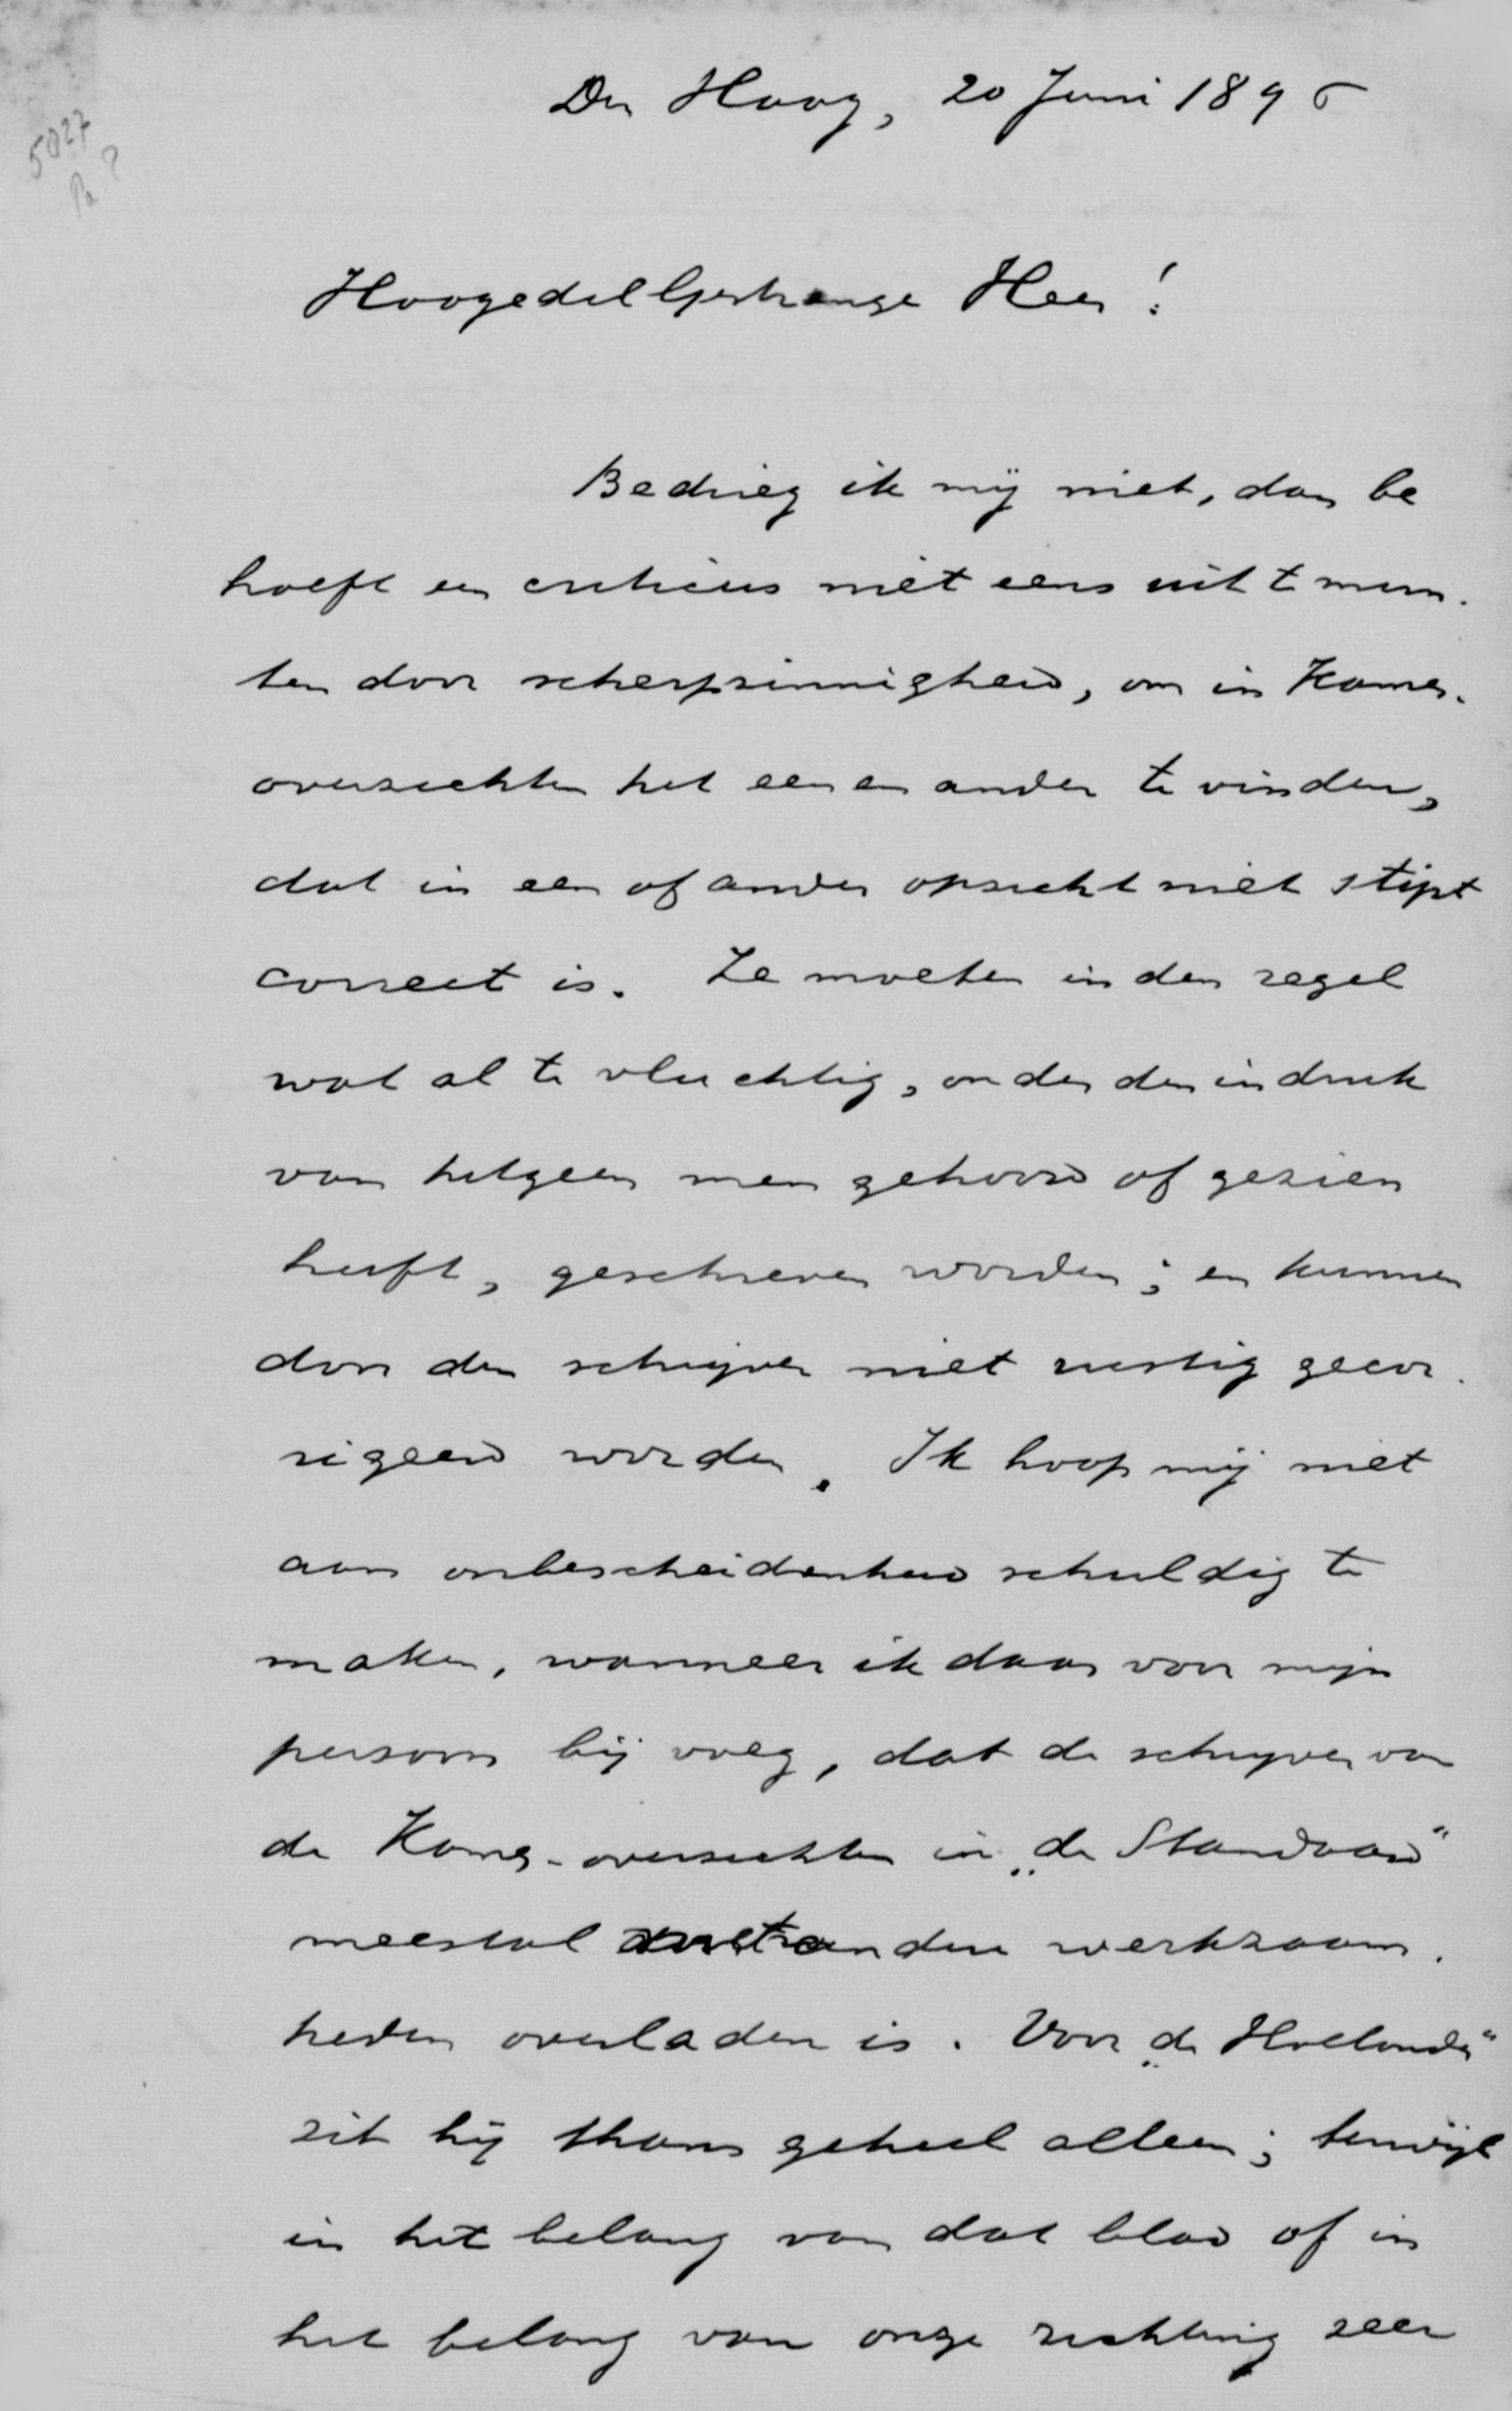 Den Haag, 20 Juni 1895
5027
Pa?
Hoogedelgestrenge Heer!
Bedrieg ik mij niet, dan be
hoeft een criticus niet eens uit te mun-
ten door scherpzinnigheid, om in Kamer-
overzichten het een en ander te vinden,
dat in een of ander opzicht niet stipt
correct is. Ze moeten in den regel
wat al te vluchtig, onder den indruk
van hetgeen men gehoord of gezien
heeft, geschreven worden; en kunnen
door den schrijver niet rustig gecor-
rigeerd worden. Ik hoop mij niet
aan onbescheidenheid schuldig te
maken, wanneer ik daar voor mijn
persoon bij voeg, dat de schrijver van
de Kamer-overzichten in „de Standaard"
meestal andere werkzaam-
heden overladen is. Voor „de Hollander"
zit hij thans geheel alleen; terwijl
in het belang van dat blad of in
het belang van onze richting zeer